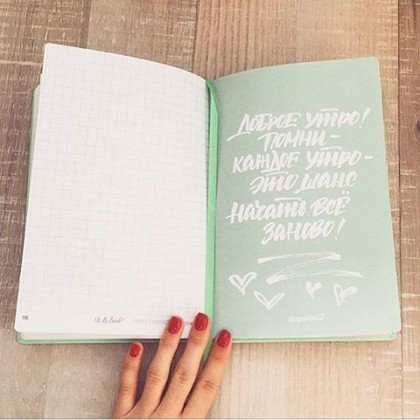 Oh My Book!
Доброе утро!
Помни –
каждое утро –
это шанс
начать всё
заново!